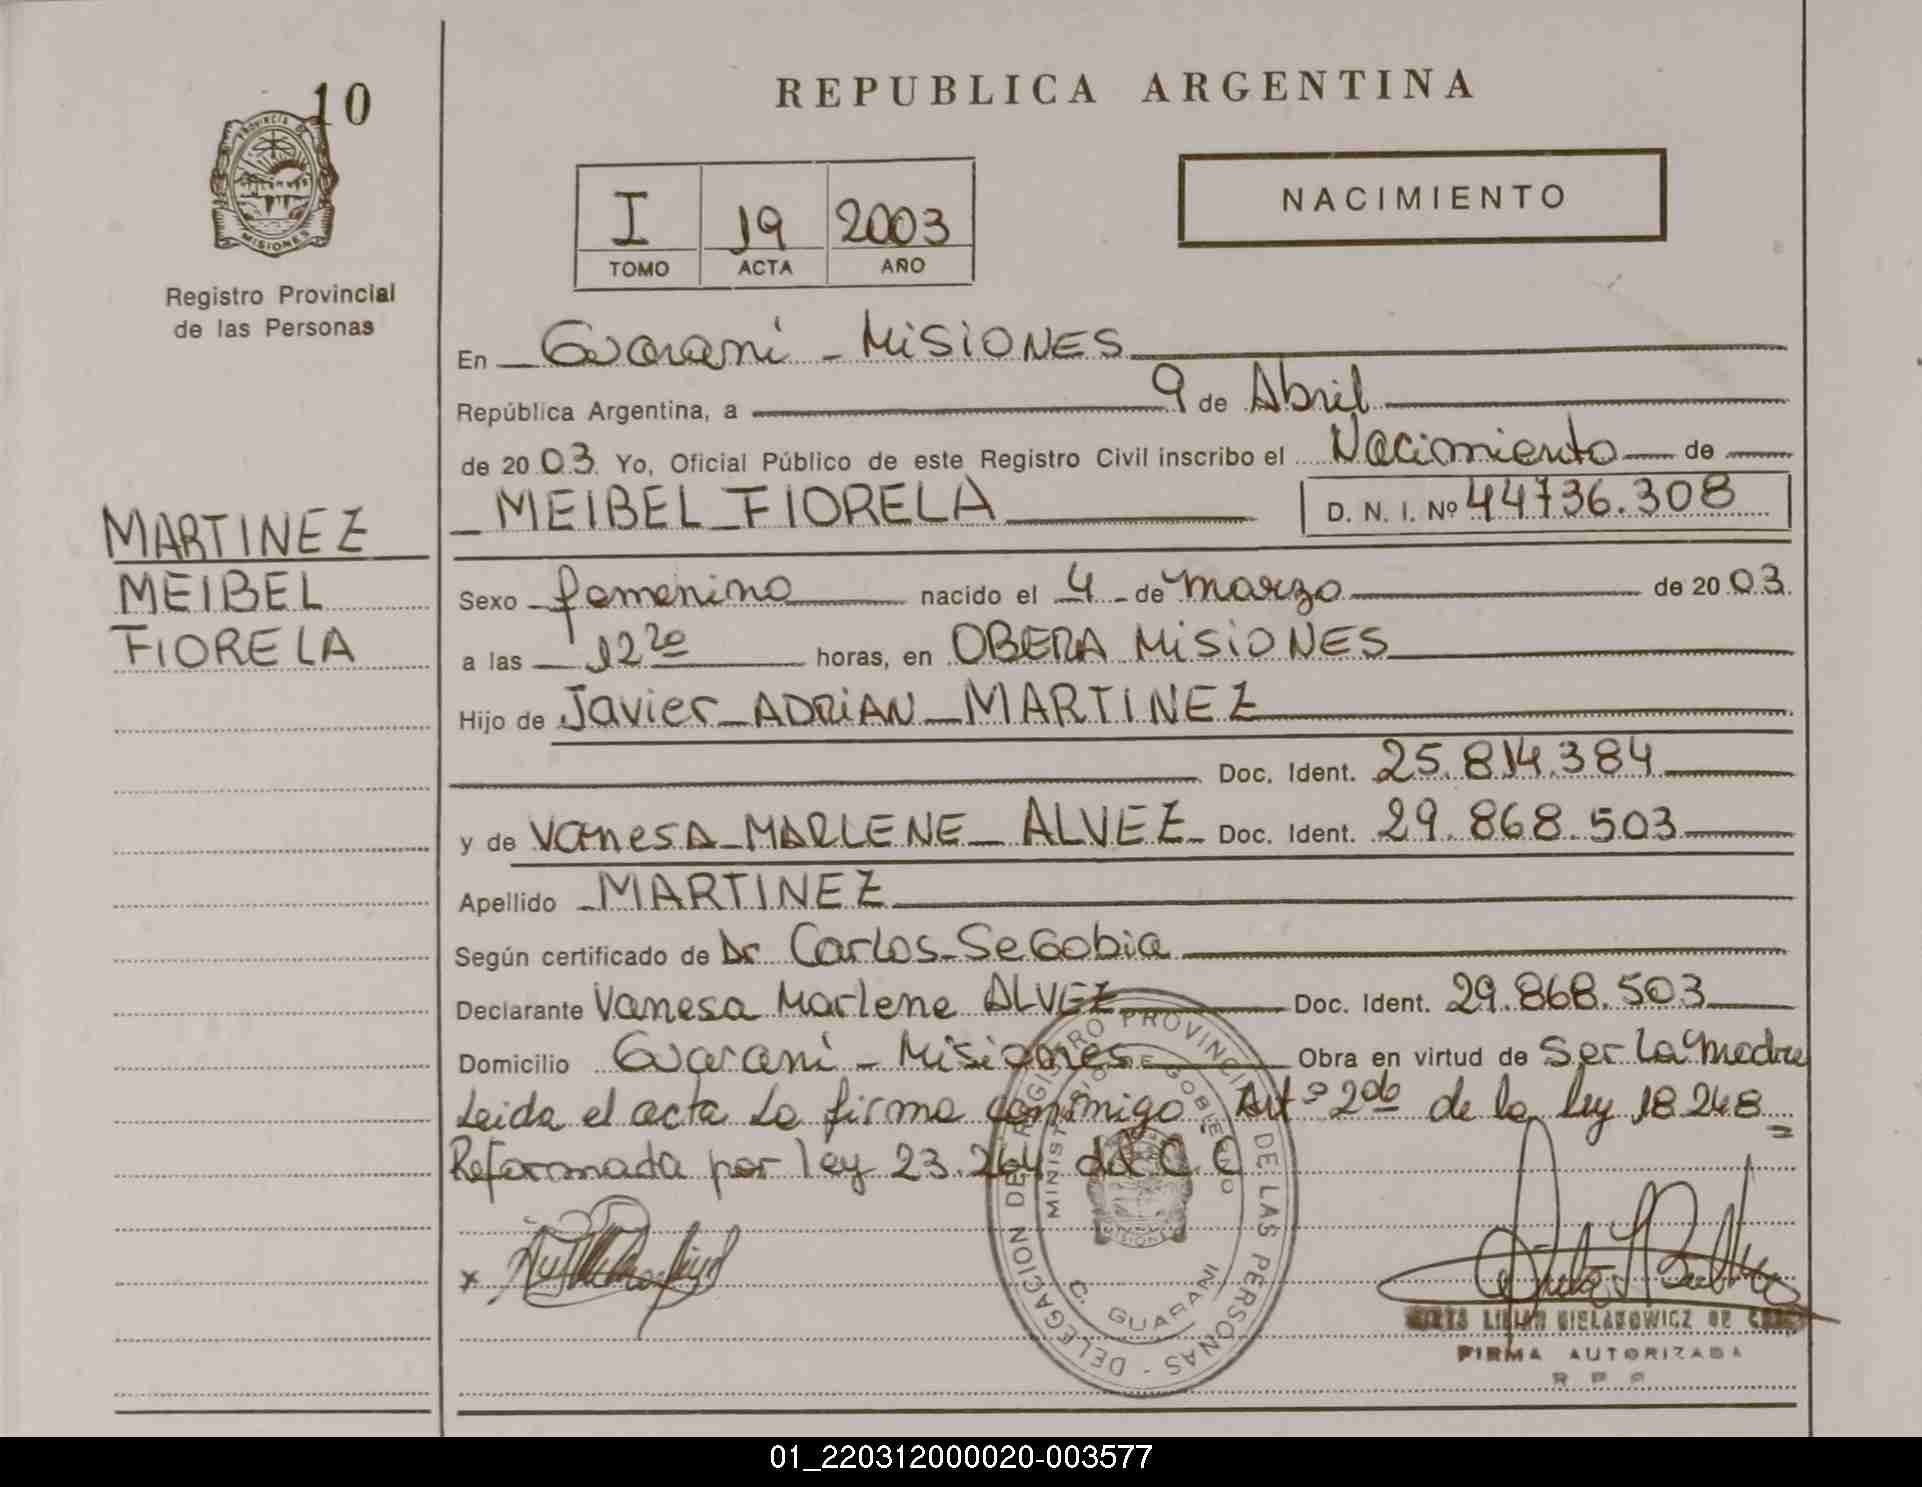 10
REPUBLICA ARGENTINA
PROVINCIA DE
MISIONES
Registro Provincial
de las Personas
I 19 2003
TOMO ACTA AÑO
NACIMIENTO
En Guarani - MISIONES
República Argentina, a 9 de Abril
de 2003. Yo, Oficial Público de este Registro Civil inscribo el Nacimiento de
MEIBEL FIORELA D. N. I. Nº 44736.308
MARTINEZ
MEIBEL
FIORELA
Sexo femenino nacido el 4 de marzo de 2003.
a las 12 20 horas, en OBERA MISIONES
Hijo de Javier ADRIAN MARTINEZ
Doc. Ident. 25.814.384
y de Vanesa MARLENE ALVEZ Doc. Ident. 29.868.503
Apellido MARTINEZ
Según certificado de Dr Carlos Segobia
Declarante Vanesa Marlene ALVEZ Doc. Ident. 29.868.503
Domicilio Guarani - Misiones Obra en virtud de Ser La madre
Leida el acta La firma conmigo Artº 2do de la ley 18.248
Reformada por ley 23.264 del C C
REGISTRO PROVINCIAL DE LAS PERSONAS - DELEGACION DE
MINISTERIO DE GOBIERNO
MISIONES
C. GUARANI
LILIAN BIELAKOWICZ DE
FIRMA AUTORIZADA
R P P
01_220312000020-003577